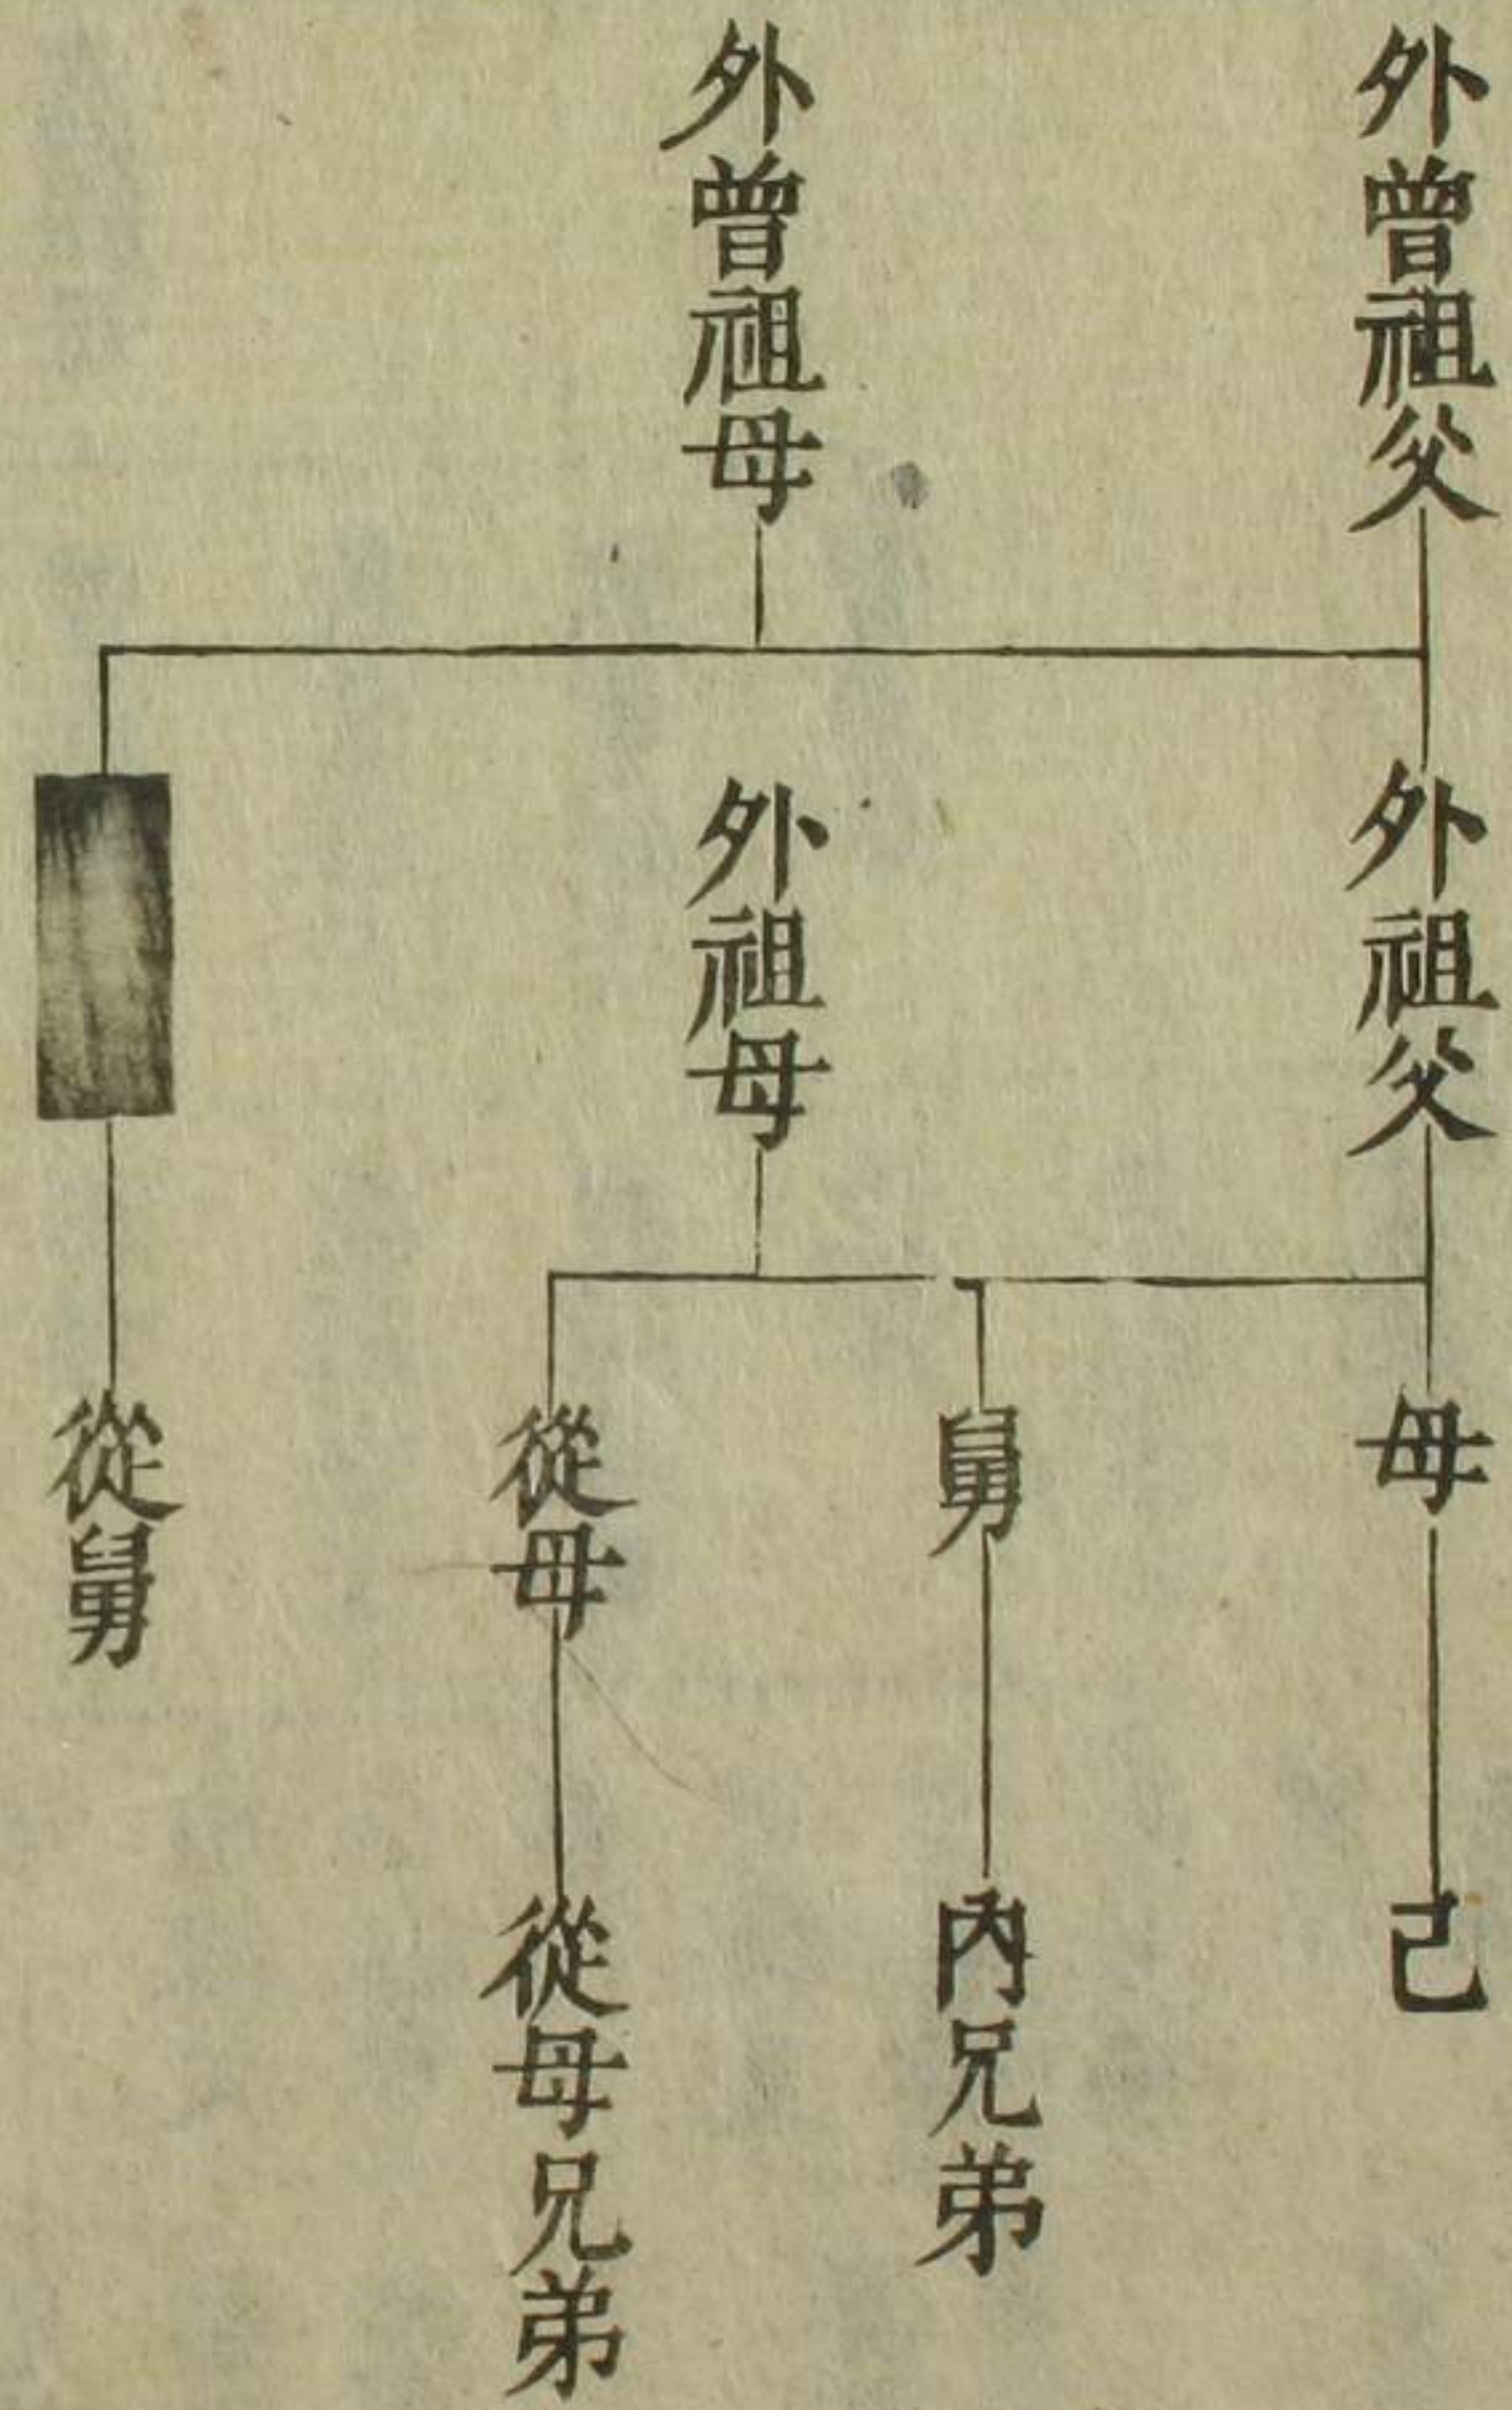 外曾祖父
外曾祖母
外祖父
外祖母
母
舅
從母
從舅
己
內兄弟
從母兄弟